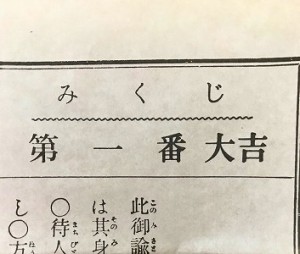 みくじ
第一番大吉
此御諭
は其身
〇待人
し〇方